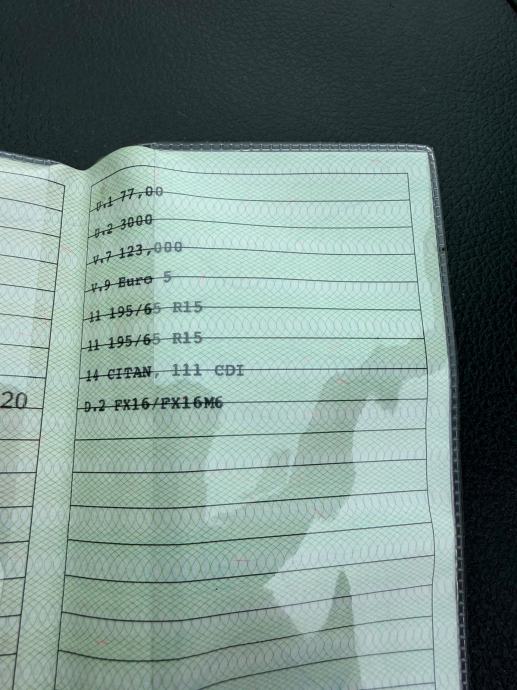 20
U.1 77,00
U.2 3000
V.7 123,000
V.9 Euro 5
11 195/65 R15
11 195/65 R15
14 CITAN, 111 CDI
D.2 FX16/FX16M6